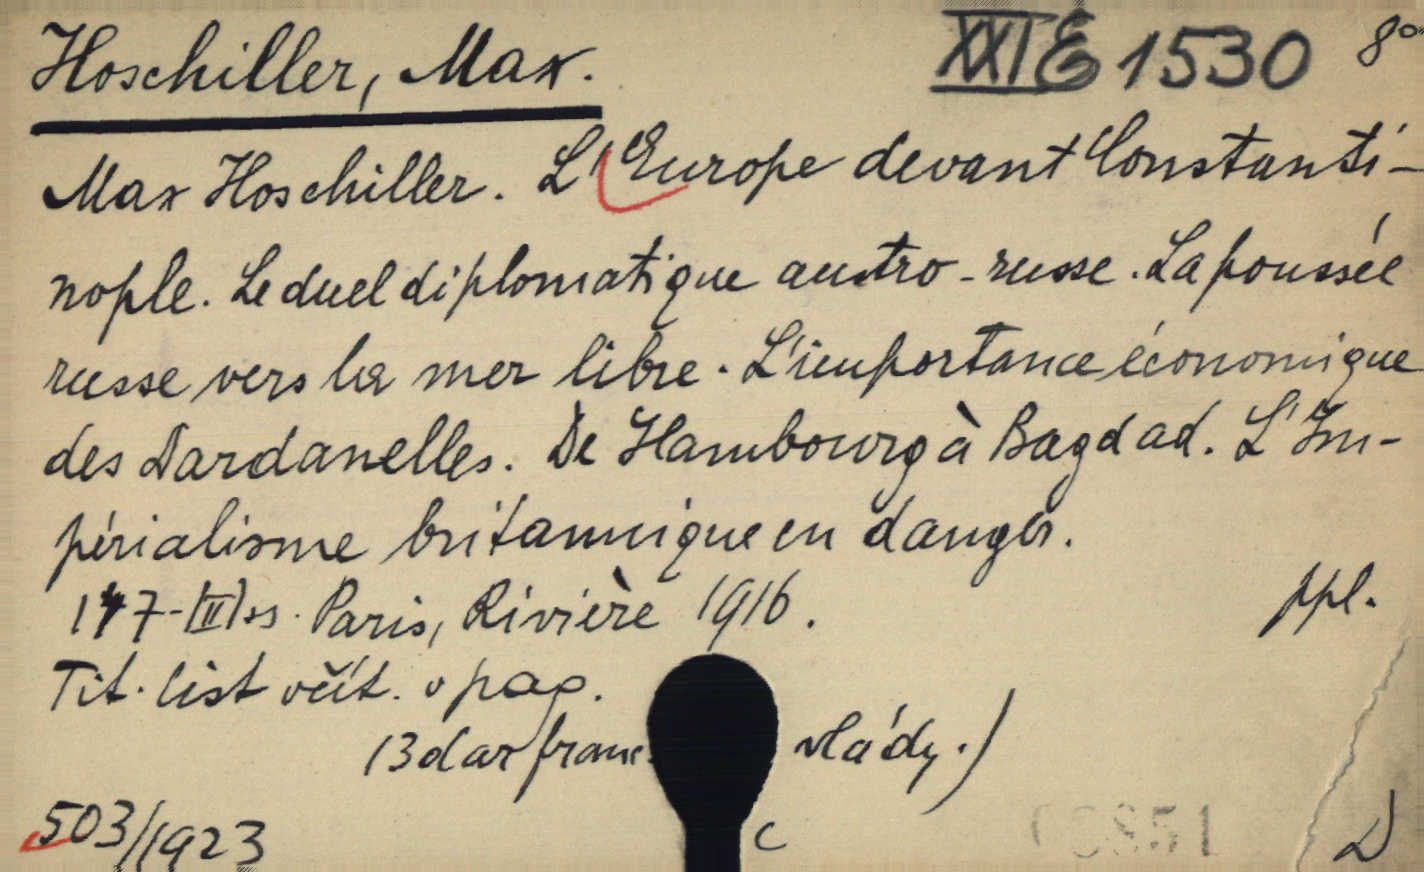 Hoschiller, Max. XXI E 1530 8°
Max Hoschiller. L'Europe devant Constanti-
nople. Le duel diplomatique austro-russe. La poussée
russe vers la mer libre. L'importance économique
des Dardanelles. De Hambourg à Bagdad. L'Im-
périalisme britannique en danger.
147-[II] ss. Paris, Rivière 1916. ppl.
Tit. list včít. v pag.
(3 dar franc. vlády.)
503/1923 C D